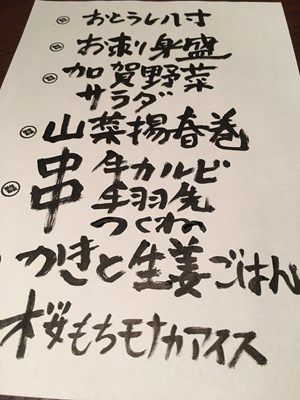 おとうし八寸
お刺身盛
加賀野菜
サラダ
山菜揚春巻
串 牛カルビ
生羽先
つくね
かきと生姜ごはん
桜もちモナカアイス